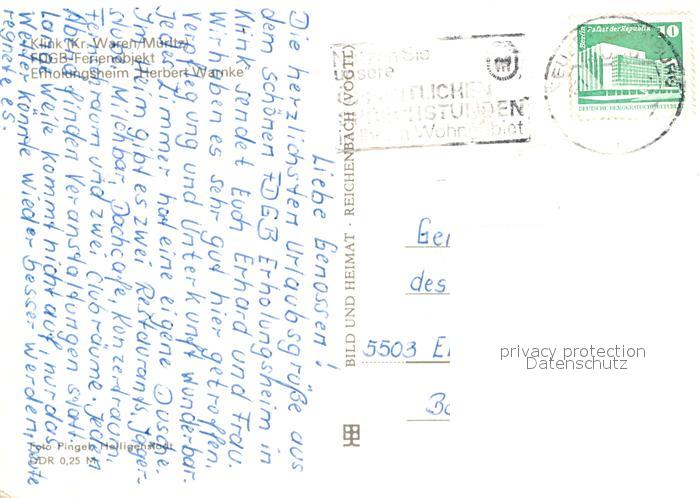 Klink (Kr. Waren/Müritz)
FDGB-Ferienobjekt
Erholungsheim "Herbert Warnke"
Liebe Genossen!
Die herzlichsten Urlaubsgrüße aus
dem schönen FDGB Erholungsheim in
Klink sendet Euch Erhard und Frau.
Wir haben es sehr gut hier getroffen,
Verpflegung und Unterkunft wunderbar.
Jedes Zimmer hat eine eigene Dusche.
Ihn gibt es zwei Restaurants, Jäger-
Milchbar, Dachcafe, Konzertraum,
raum und zwei Clubräume. Jeden
Abend finden Veranstaltungen statt.
Langeweile kommt nicht auf, nur das
Wetter könnte wieder besser werden, heute
regnete es.
Foto Pingel, Heiligenstadt
DDR 0,25 M
BILD UND HEIMAT · REICHENBACH (VOGTL)
Sie
STUNDEN
Wohngebiet
Berlin Palast der Republik
10
DEUTSCHE DEMOKRATISCHE REPUBLIK
des
5503
privacy protection
Datenschutz